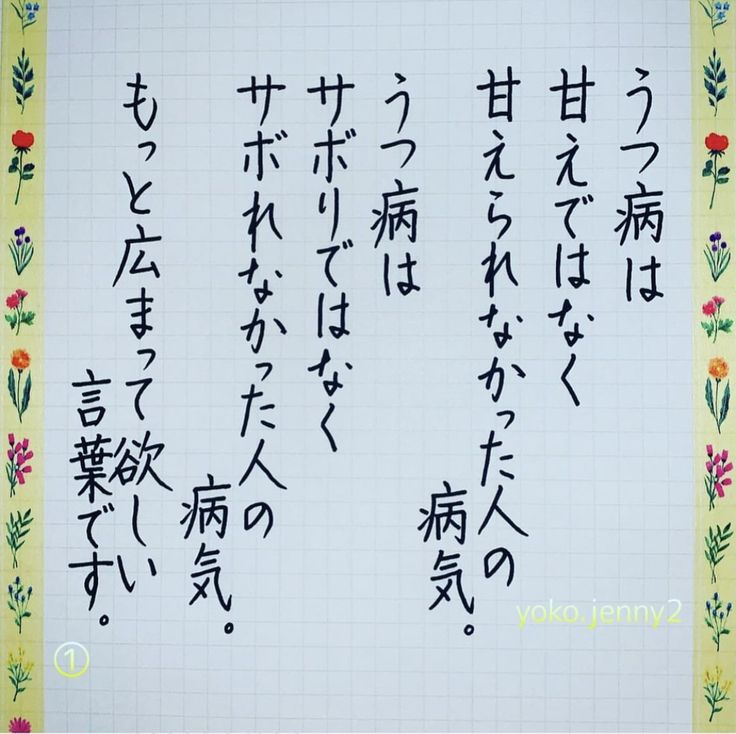 うつ病は
甘えではなく
甘えられなかった人の
病気。
うつ病は
サボりではなく
サボれなかった人の
病気。
もっと広まって欲しい
言葉です。
yoko.jenny2
①